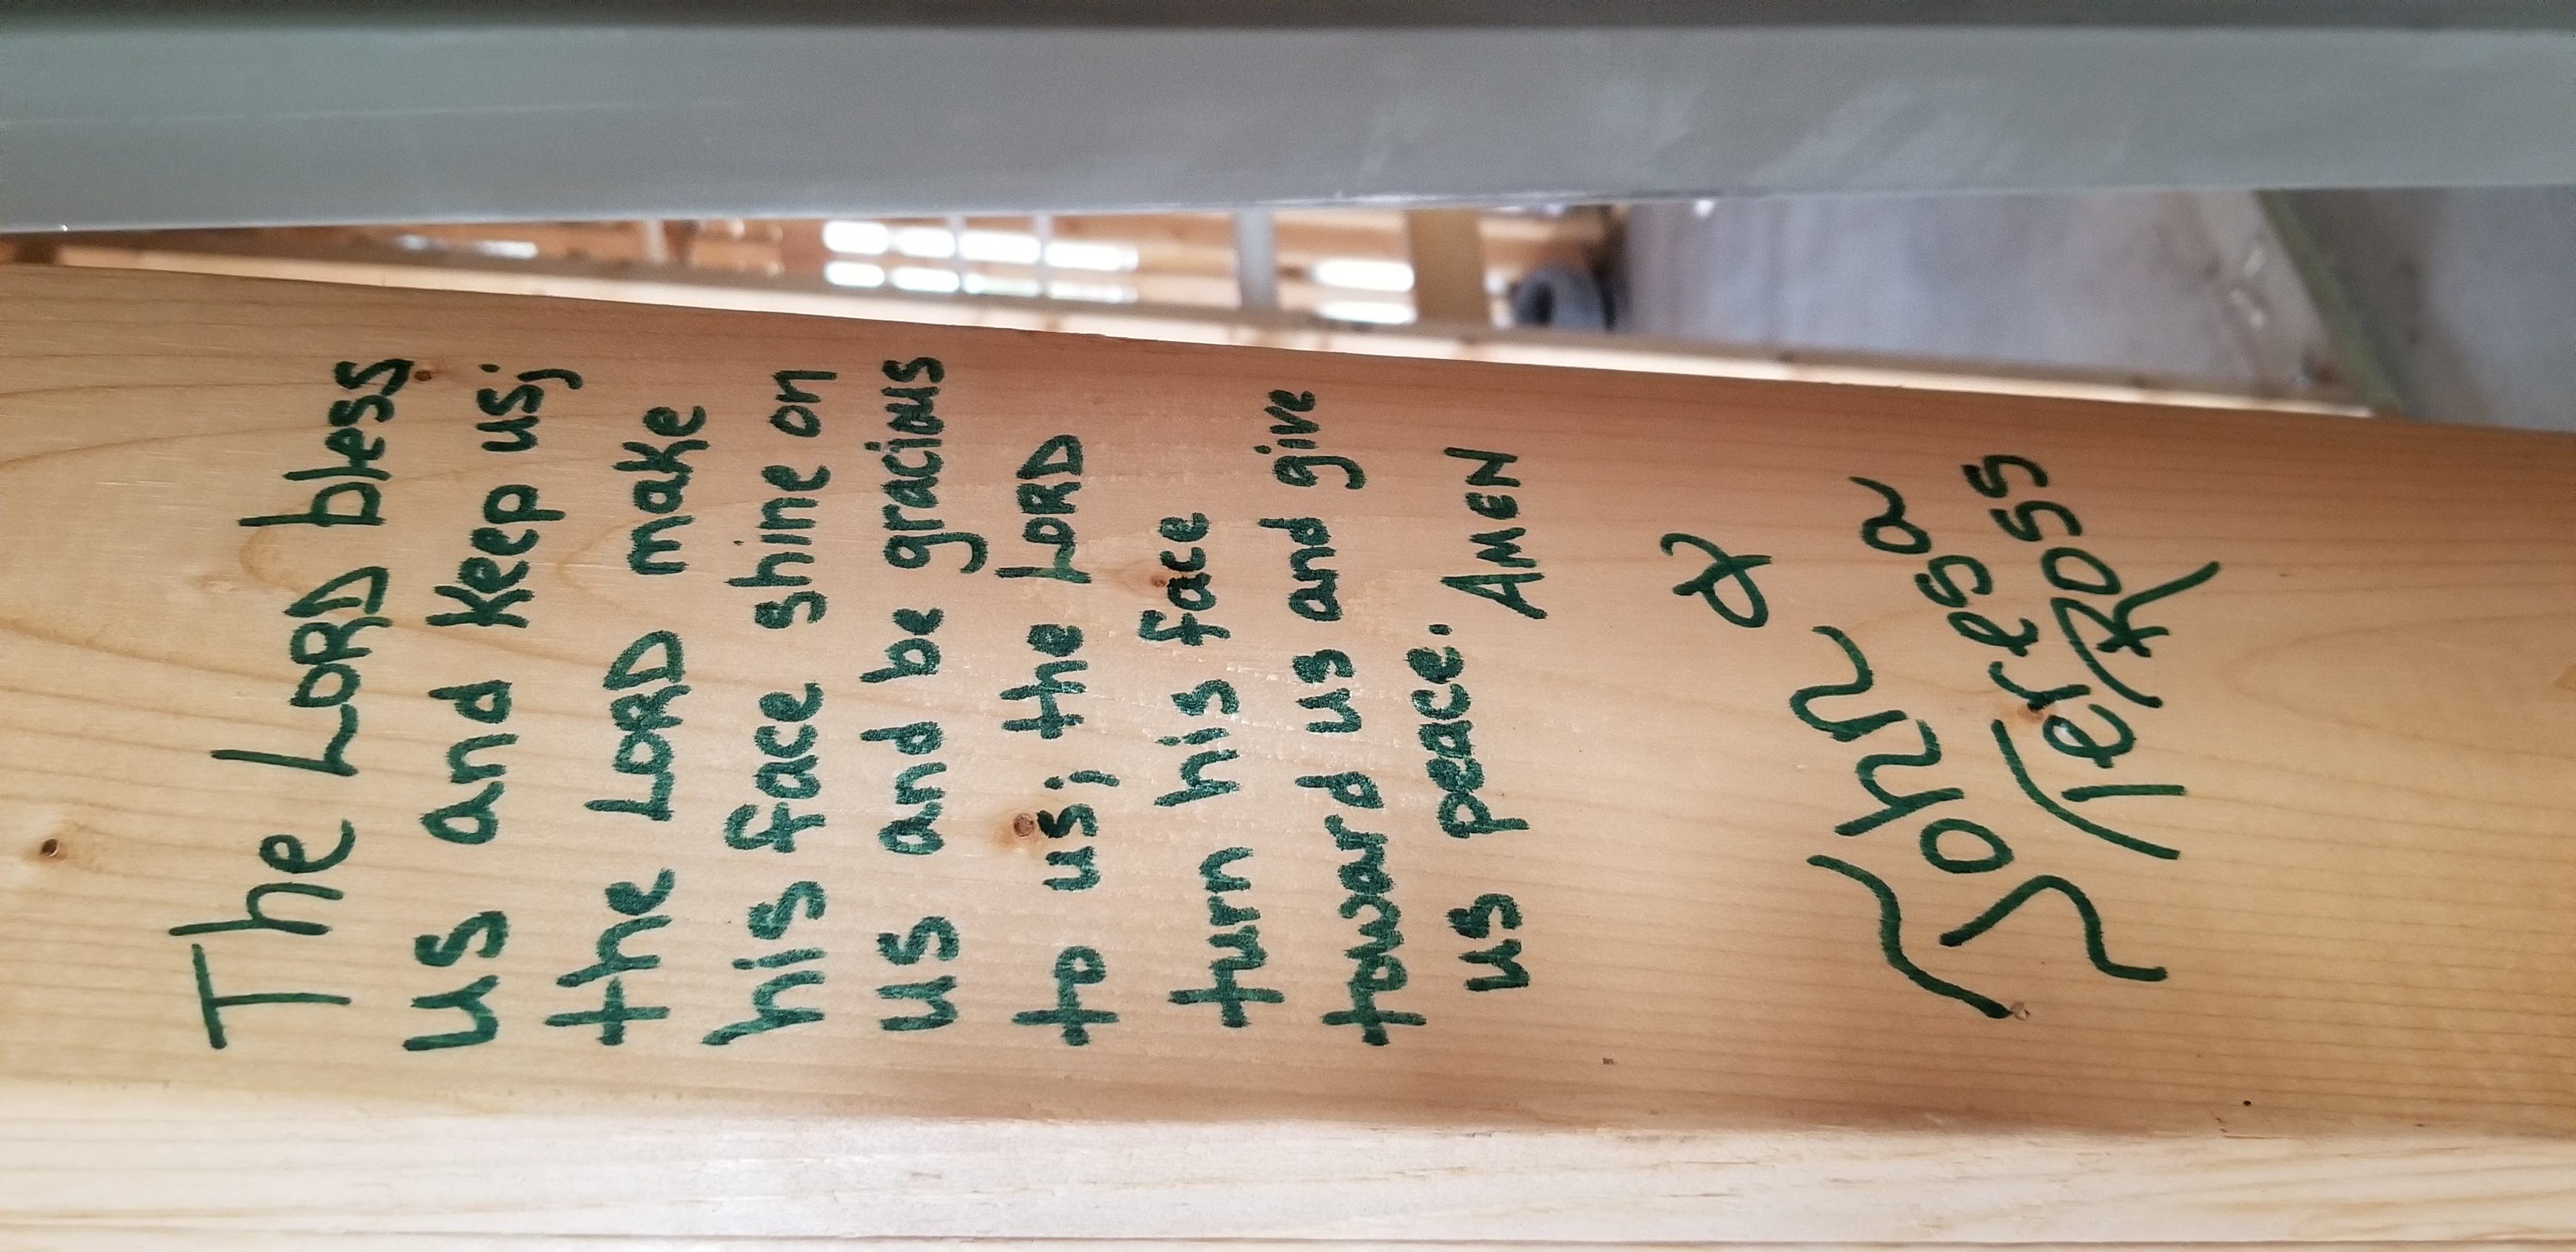 The LORD bless
us and keep us;
the LORD make
his face shine on
us and be gracious
to us; the LORD
turn his face
toward us and give
us peace. AMEN
John &
Teresa
Ross